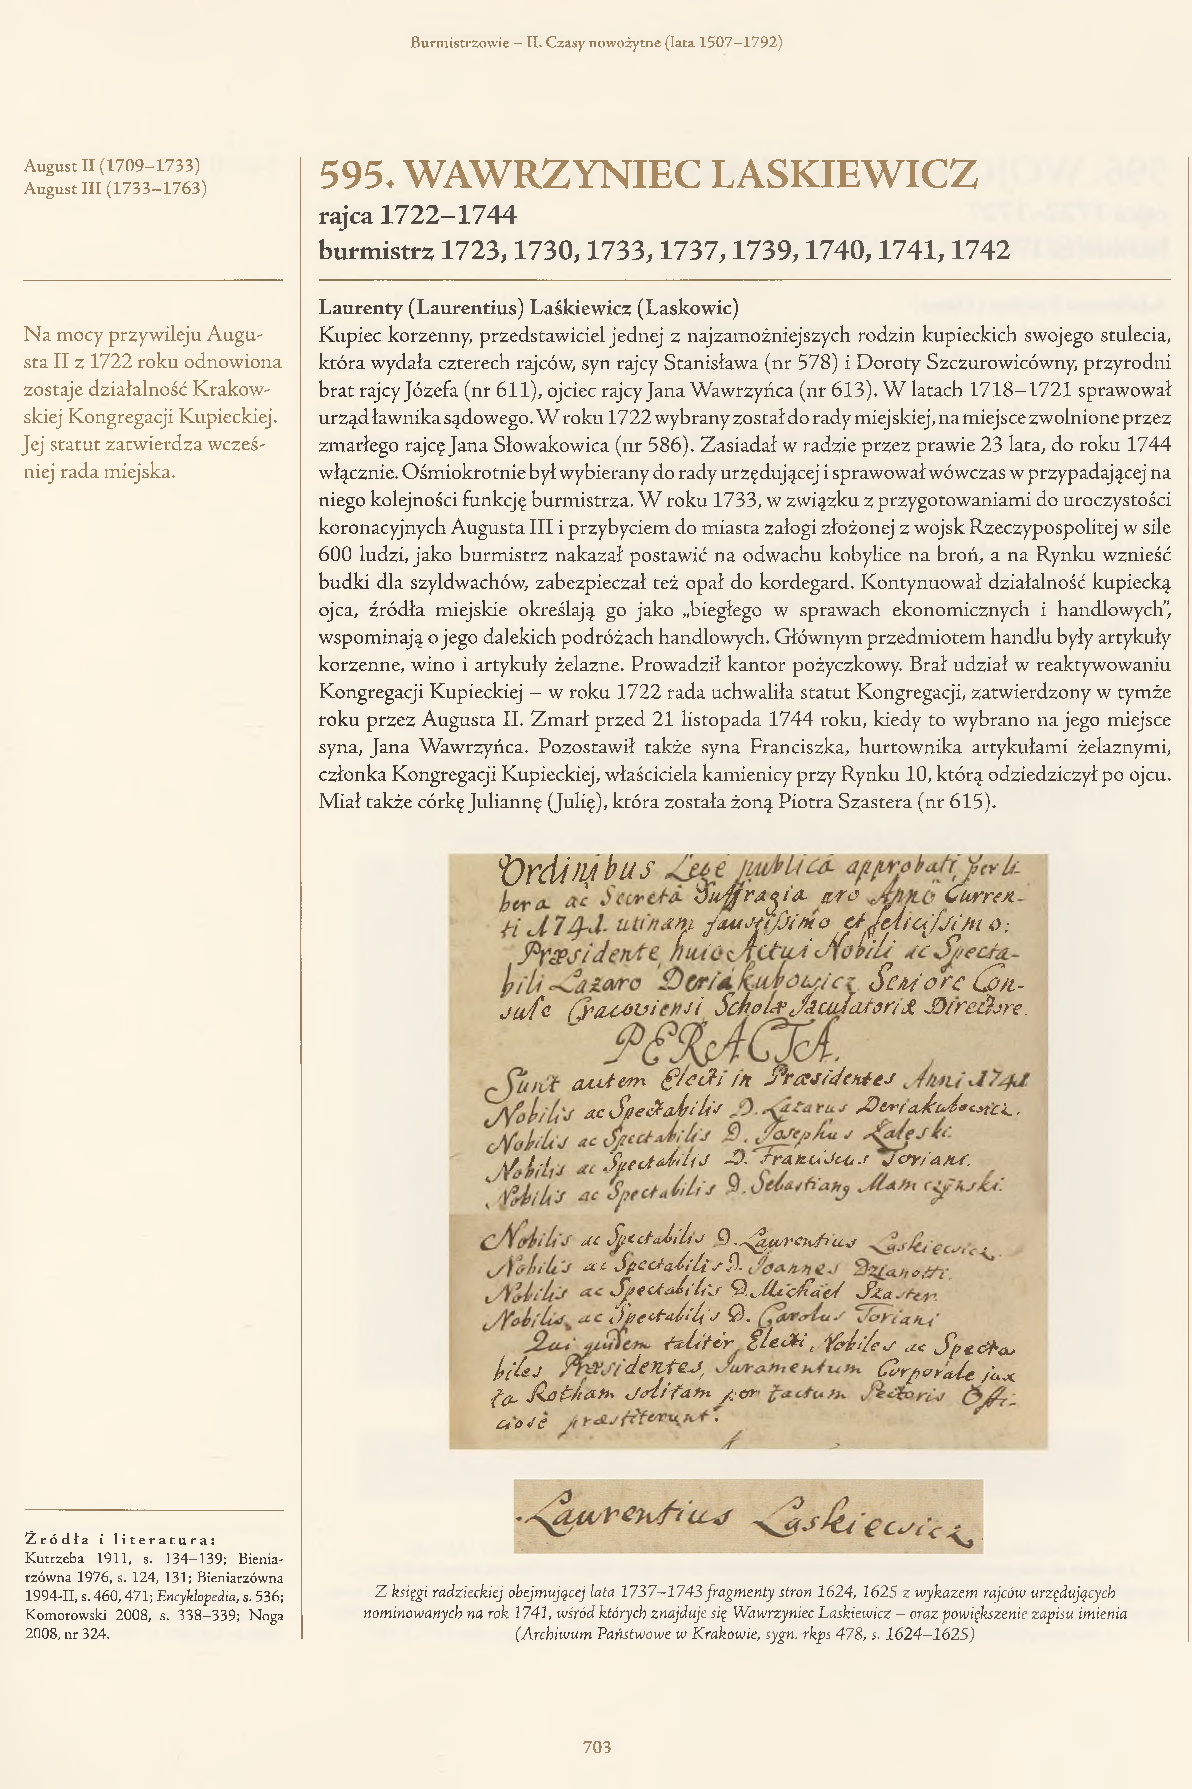 Burmistrzowie – II. Czasy nowożytne (lata 1507–1792)
August II (1709–1733)
August III (1733–1763)
Na mocy przywileju Augu-
sta II z 1722 roku odnowiona
zostaje działalność Krakow-
skiej Kongregacji Kupieckiej.
Jej statut zatwierdza wcześ-
niej rada miejska.
595. WAWRZYNIEC LASKIEWICZ
rajca 1722–1744
burmistrz 1723, 1730, 1733, 1737, 1739, 1740, 1741, 1742
Laurenty (Laurentius) Laśkiewicz (Laskowic)
Kupiec korzenny, przedstawiciel jednej z najzamożniejszych rodzin kupieckich swojego stulecia,
która wydała czterech rajców, syn rajcy Stanisława (nr 578) i Doroty Szczurowicówny, przyrodni
brat rajcy Józefa (nr 611), ojciec rajcy Jana Wawrzyńca (nr 613). W latach 1718–1721 sprawował
urząd ławnika sądowego. W roku 1722 wybrany został do rady miejskiej, na miejsce zwolnione przez
zmarłego rajcę Jana Słowakowica (nr 586). Zasiadał w radzie przez prawie 23 lata, do roku 1744
włącznie. Ośmiokrotnie był wybierany do rady urzędującej i sprawował wówczas w przypadającej na
niego kolejności funkcję burmistrza. W roku 1733, w związku z przygotowaniami do uroczystości
koronacyjnych Augusta III i przybyciem do miasta załogi złożonej z wojsk Rzeczypospolitej w sile
600 ludzi, jako burmistrz nakazał postawić na odwachu kobylice na broń, a na Rynku wznieść
budki dla szyldwachów, zabezpieczał też opał do kordegard. Kontynuował działalność kupiecką
ojca, źródła miejskie określają go jako „biegłego w sprawach ekonomicznych i handlowych”,
wspominają o jego dalekich podróżach handlowych. Głównym przedmiotem handlu były artykuły
korzenne, wino i artykuły żelazne. Prowadził kantor pożyczkowy. Brał udział w reaktywowaniu
Kongregacji Kupieckiej – w roku 1722 rada uchwaliła statut Kongregacji, zatwierdzony w tymże
roku przez Augusta II. Zmarł przed 21 listopada 1744 roku, kiedy to wybrano na jego miejsce
syna, Jana Wawrzyńca. Pozostawił także syna Franciszka, hurtownika artykułami żelaznymi,
członka Kongregacji Kupieckiej, właściciela kamienicy przy Rynku 10, którą odziedziczył po ojcu.
Miał także córkę Juliannę (Julię), która została żoną Piotra Szastera (nr 615).
Ordinibus Lege publica approbati, per li-
bera ac Secreta Suffragia pro Anno Curren-
ti 1741. utinam faustissimo et felicissimo:
Præsidente huic Actui Nobili ac Specta-
bili Lazaro Deriakubowicz Seniore Con-
sule Cracoviensi Scholæ Jaculatoriæ Directore.
PERACTA.
Sunt autem Electi in Præsidentes Anni 1741
Nobilis ac Spectabilis D. Lazarus Deriakubowicz.
Nobilis ac Spectabilis D. Josephus Zaleski.
Nobilis ac Spectabilis D. Franciscus Toriani.
Nobilis ac Spectabilis D. Sebastiang Mamczynski.
Nobilis ac Spectabilis D. Laurentius Laskiewicz.
Nobilis ac Spectabilis D. Joannes Dzianotti.
Nobilis ac Spectabilis D. Michael Szaster.
Nobilis ac Spectabilis D. Carolus Toriani
Qui quidem taliter Electi, Nobiles ac Specta
biles Præsidentes, Juramentum Corporale jux
ta Rotham solitam per tactum Pectoris Offi-
ciose præstiterunt.
Laurentius Laskiewicz
Z księgi radzieckiej obejmującej lata 1737–1743 fragmenty stron 1624, 1625 z wykazem rajców urzędujących
nominowanych na rok 1741, wśród których znajduje się Wawrzyniec Laskiewicz – oraz powiększenie zapisu imienia
(Archiwum Państwowe w Krakowie, sygn. rkps 478, s. 1624–1625)
Źródła i literatura:
Kutrzeba 1911, s. 134–139; Bienia-
rzówna 1976, s. 124, 131; Bieniarzówna
1994-II, s. 460, 471; Encyklopedia, s. 536;
Komorowski 2008, s. 338–339; Noga
2008, nr 324.
703